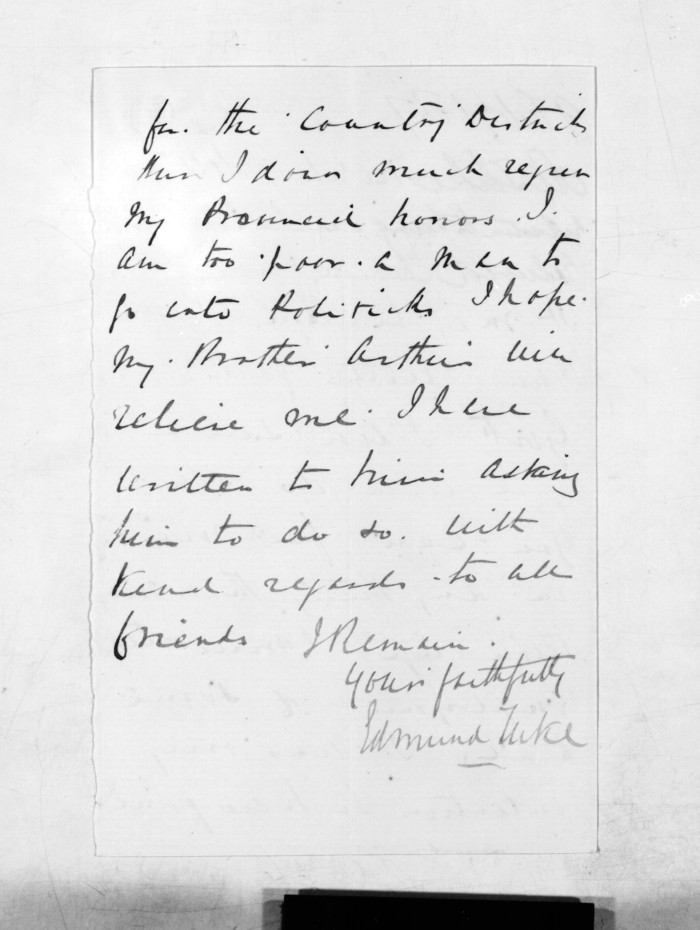 for the Country Districts
then I do not much regret
my Provincial honors. I
am too poor a man to
go into Politicks I hope
my Brother Arthur will
relieve me. I have
written to him asking
him to do so. With
kind regards to all
friends I Remain
Yours faithfully
Edmund